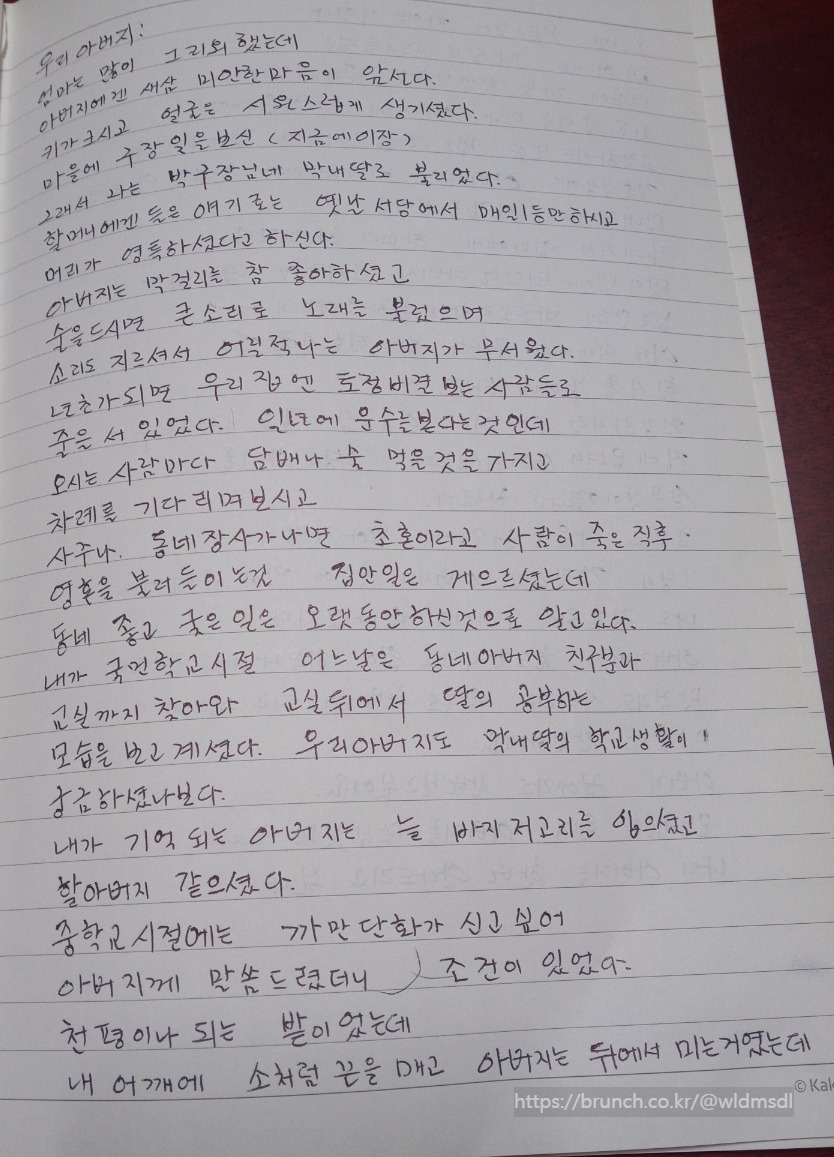 우리 아버지:
엄마는 많이 그리워했는데
아버지에겐 새삼 미안한마음이 앞선다.
키가크시고 얼굴은 서원스럽게 생기셨다.
마을에 구장일을보신 (지금에이장)
그래서 나는 박구장님네 막내딸로 불리었다.
할머니에겐 들은 얘기로는 옛날 서당에서 매일1등만하시고
머리가 영특하셨다고하신다.
아버지는 막걸리를 참 좋아하셨고
술을드시면 큰소리로 노래를 불렀으며
소리도 지르셔서 어릴적나는 아버지가 무서웠다.
년초가되면 우리집엔 토정비결보는사람들로
줄을 서 있었다. 일년에 운수를본다는것인데
오시는사람마다 담배나 술 먹을것을가지고
차례를 기다리며보시고
사주나. 동네장사가나면 초혼이라고 사람이 죽은직후.
영혼을 불러들이는것 집안일은 게으르셨는데
동네 좋고 궂은일은 오랫동안하신것으로 알고있다.
내가 국민학교시절 어느날은 동네아버지 친구분과
교실까지 찾아와 교실뒤에서 딸의 공부하는
모습을보고계셨다. 우리아버지도 막내딸의 학교생활이
궁금하셨나보다.
내가 기억되는 아버지는 늘 바지저고리를 입으셨고
할아버지 같으셨다.
중학교시절에는 까만단화가 신고싶어
아버지께 말씀드렸더니 조건이 있었다.
천평이나 되는 밭이었는데
내 어깨에 소처럼 끈을매고 아버지는 뒤에서 미는거였는데
© Kak
https://brunch.co.kr/@wldmsdl